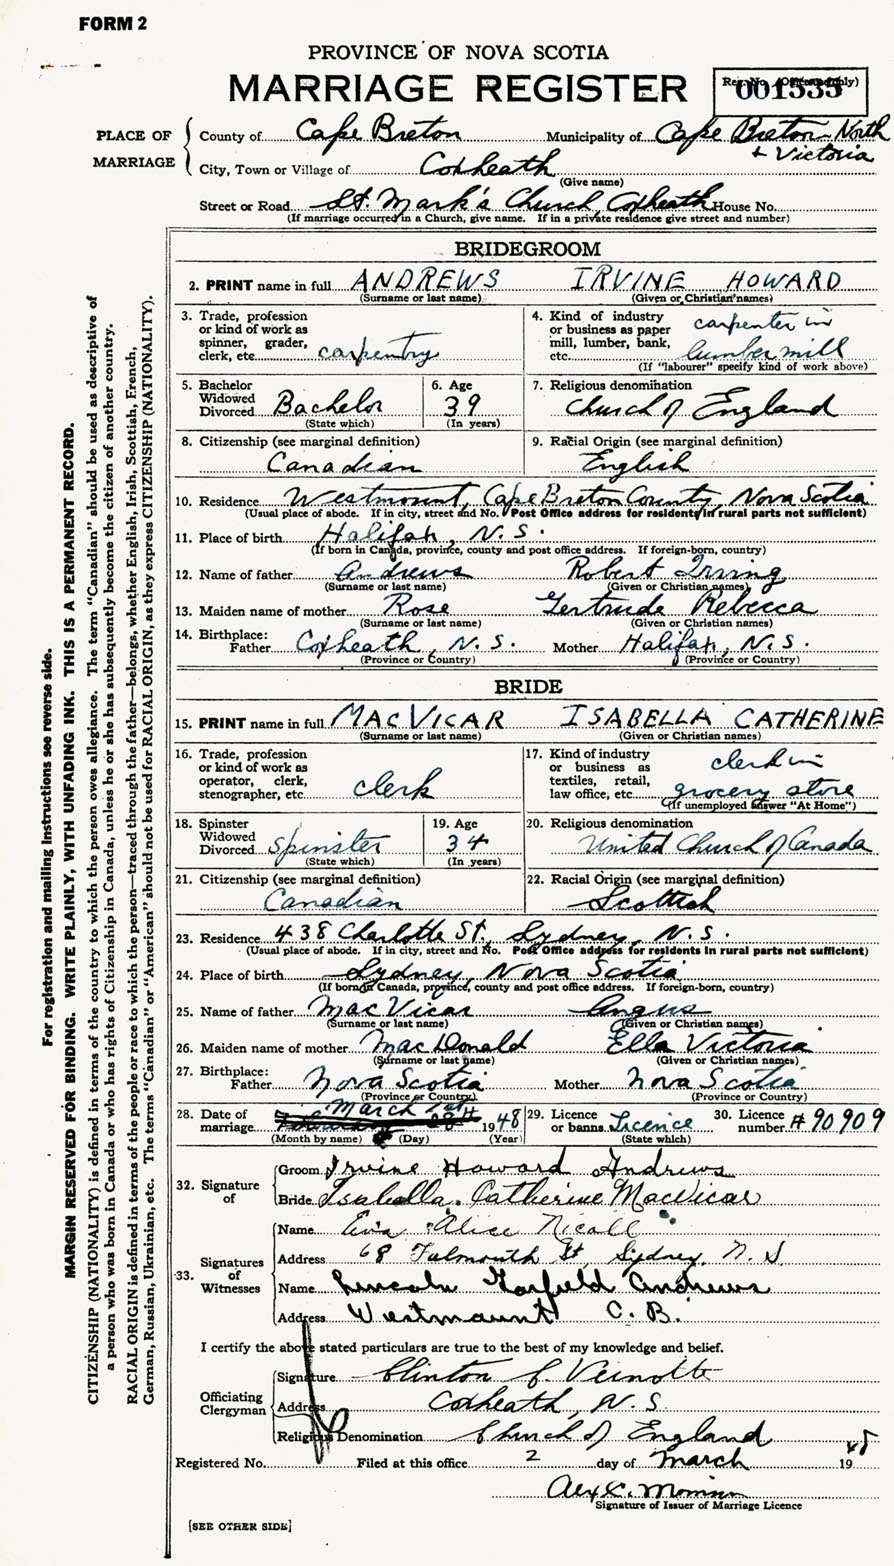 FORM 2
PROVINCE OF NOVA SCOTIA
MARRIAGE REGISTER
Reg. No. (Office use only)
001535
PLACE OF MARRIAGE
County of Cape Breton Municipality of Cape Breton - North + Victoria
City, Town or Village of Coxheath
(Give name)
Street or Road St. Mark's Church, Coxheath House No.
(If marriage occurred in a Church, give name. If in a private residence give street and number)
BRIDEGROOM
2. PRINT name in full ANDREWS IRVINE HOWARD
(Surname or last name) (Given or Christian names)
3. Trade, profession or kind of work as spinner, grader, clerk, etc. carpentry
4. Kind of industry or business as paper mill, lumber, bank, etc. carpenter in lumber mill
(If "labourer" specify kind of work above)
5. Bachelor Widowed Divorced Bachelor
(State which)
6. Age 39
(In years)
7. Religious denomination
Church of England
8. Citizenship (see marginal definition)
Canadian
9. Racial Origin (see marginal definition)
English
10. Residence Westmount, Cape Breton County, Nova Scotia
(Usual place of abode. If in city, street and No. Post Office address for residents in rural parts not sufficient)
11. Place of birth Halifax, N.S.
(If born in Canada, province, county and post office address. If foreign-born, country)
12. Name of father Andrews Robert Irving
(Surname or last name) (Given or Christian names)
13. Maiden name of mother Rose Gertrude Rebecca
(Surname or last name) (Given or Christian names)
14. Birthplace: Father Coxheath, N.S. Mother Halifax, N.S.
(Province or Country) (Province or Country)
BRIDE
15. PRINT name in full MACVICAR ISABELLA CATHERINE
(Surname or last name) (Given or Christian names)
16. Trade, profession or kind of work as operator, clerk, stenographer, etc. clerk
17. Kind of industry or business as textiles, retail, law office, etc. clerk in grocery store
(If unemployed answer "At Home")
18. Spinster Widowed Divorced Spinster
(State which)
19. Age 34
(In years)
20. Religious denomination
United Church of Canada
21. Citizenship (see marginal definition)
Canadian
22. Racial Origin (see marginal definition)
Scottish
23. Residence 438 Charlotte St., Sydney, N.S.
(Usual place of abode. If in city, street and No. Post Office address for residents in rural parts not sufficient)
24. Place of birth Sydney, Nova Scotia
(If born in Canada, province, county and post office address. If foreign-born, country)
25. Name of father MacVicar Angus
(Surname or last name) (Given or Christian names)
26. Maiden name of mother MacDonald Ella Victoria
(Surname or last name) (Given or Christian names)
27. Birthplace: Father Nova Scotia Mother Nova Scotia
(Province or Country) (Province or Country)
28. Date of marriage March 1948
(Month by name) (Day) (Year)
29. Licence or banns Licence
(State which)
30. Licence number #90909
32. Signature of
Groom Irvine Howard Andrews
Bride Isabella Catherine MacVicar
33. Signatures of Witnesses
Name Eva Alice Nicoll
Address 68 Falmouth St Sydney, N.S
Name Lincoln Garfield Andrews
Address Westmount C.B.
I certify the above stated particulars are true to the best of my knowledge and belief.
Officiating Clergyman
Signature Clinton Veinotte
Address Coxheath, N.S.
Religious Denomination Church of England
Registered No. Filed at this office 2 day of March 1948
Signature of Issuer of Marriage Licence
[SEE OTHER SIDE]
For registration and mailing instructions see reverse side.
MARGIN RESERVED FOR BINDING. WRITE PLAINLY, WITH UNFADING INK. THIS IS A PERMANENT RECORD.
CITIZENSHIP (NATIONALITY) is defined in terms of the country to which the person owes allegiance. The term "Canadian" should be used as descriptive of
a person who was born in Canada or who has rights of Citizenship in Canada, unless he or she has subsequently become the citizen of another country.
RACIAL ORIGIN is defined in terms of the people or race to which the person—traced through the father—belongs, whether English, Irish, Scottish, French,
German, Russian, Ukrainian, etc. The terms "Canadian" or "American" should not be used for RACIAL ORIGIN, as they express CITIZENSHIP (NATIONALITY).